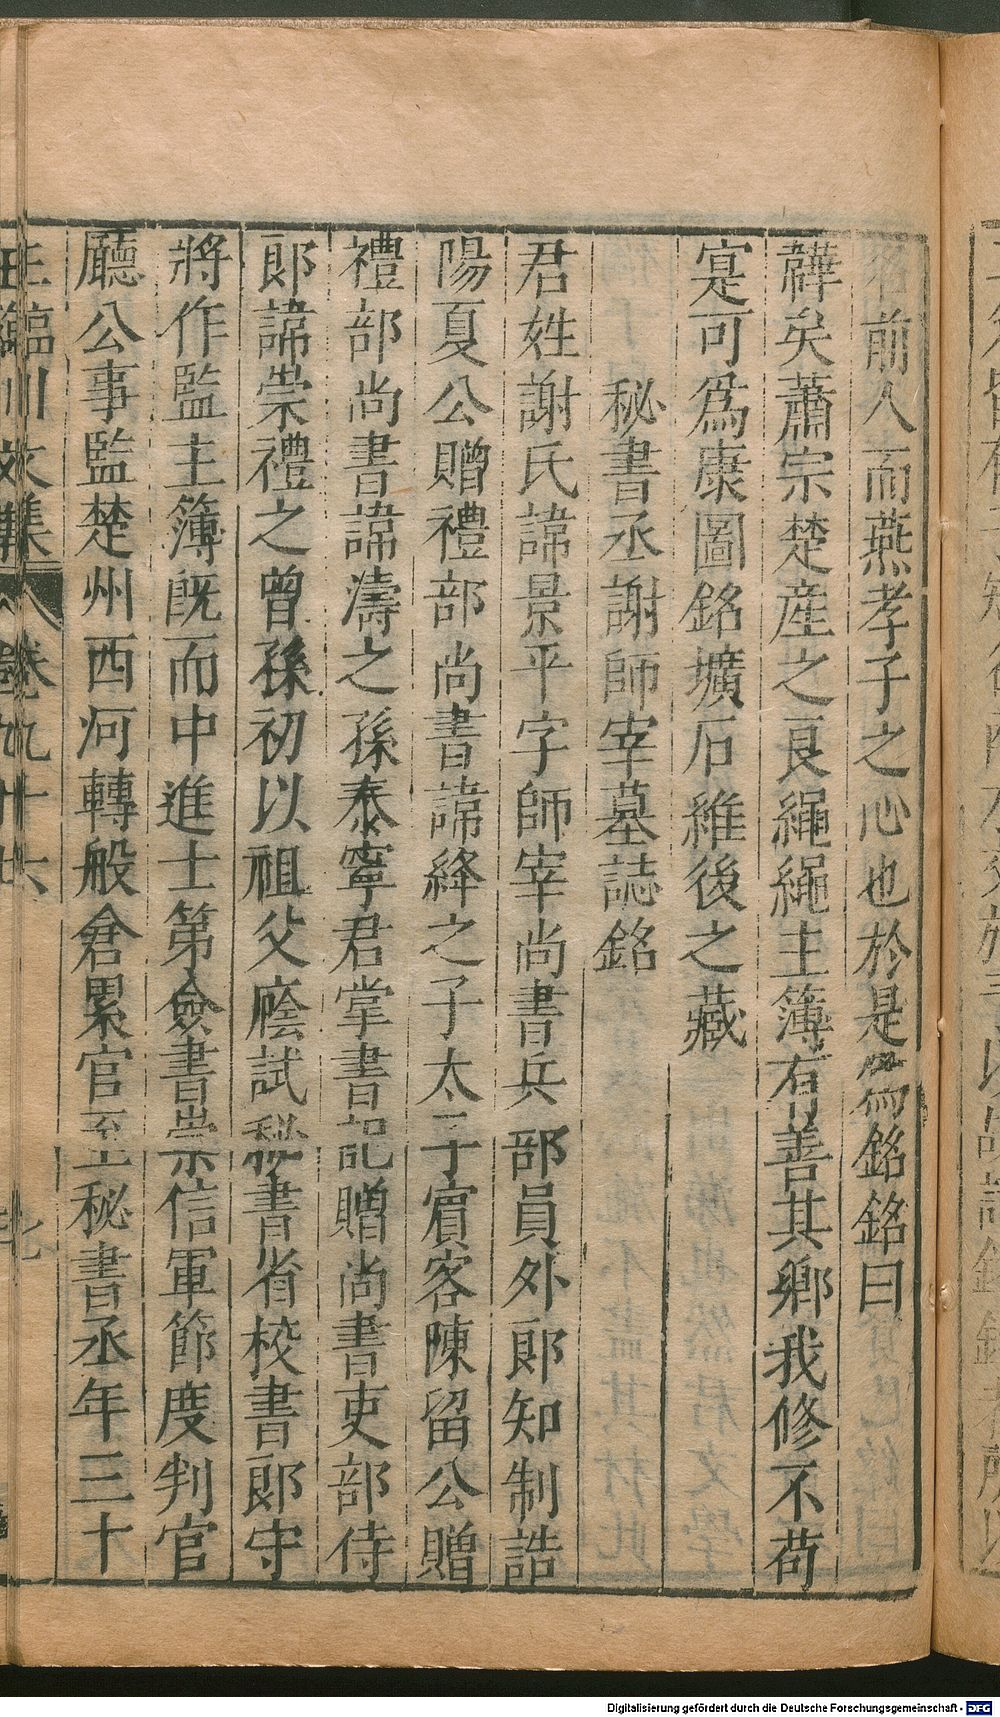 前人而燕孝子之心也於是爲銘銘曰
韡矣蕭宗楚産之良繩繩主簿有善其鄉我修不苟
寔可爲康圖銘壙石維後之藏
秘書丞謝師宰墓誌銘
君姓謝氏諱景平字師宰尚書兵部員外郎知制誥
陽夏公贈禮部尚書諱絳之子太子賓客陳留公贈
禮部尚書諱濤之孫泰寧君掌書記贈尚書吏部侍
郎諱崇禮之曾孫初以祖父廕試秘書省校書郎守
將作監主簿旣而中進士第僉書崇信軍節度判官
廳公事監楚州西河轉般倉累官至秘書丞年三十
王臨川文集 卷九十六 七
Digitalisierung gefördert durch die Deutsche Forschungsgemeinschaft - DFG